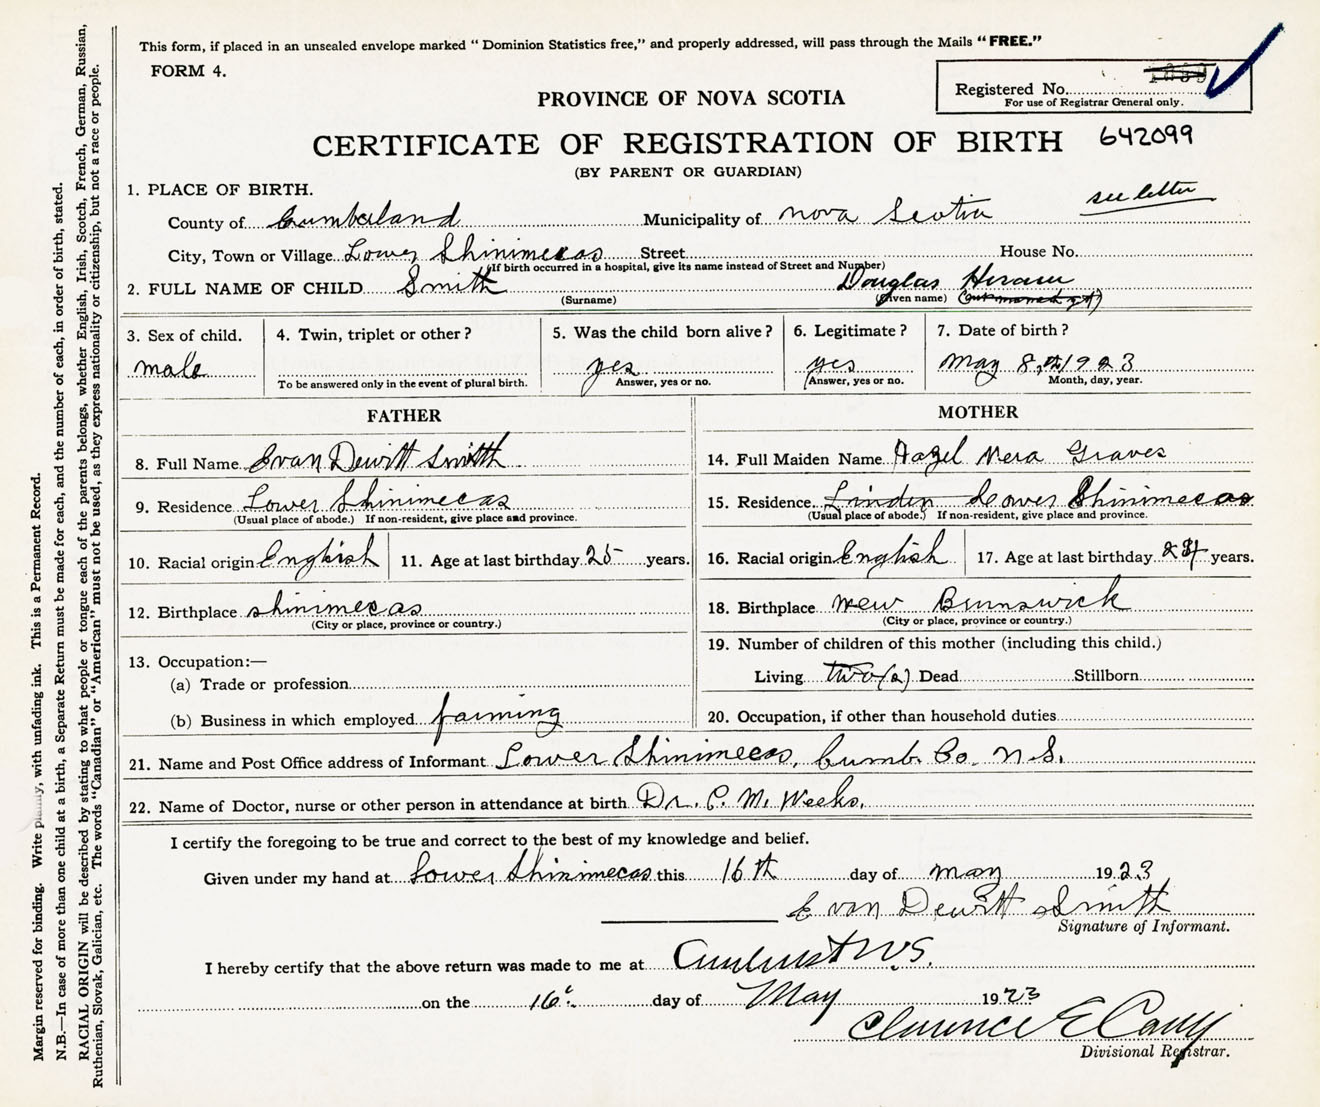 This form, if placed in an unsealed envelope marked "Dominion Statistics free," and properly addressed, will pass through the Mails "FREE."
FORM 4.
Registered No.
For use of Registrar General only.
PROVINCE OF NOVA SCOTIA
CERTIFICATE OF REGISTRATION OF BIRTH 642099
(BY PARENT OR GUARDIAN)
see letter
1. PLACE OF BIRTH.
County of Cumberland Municipality of Nova Scotia
City, Town or Village Lower Shinimecas Street House No.
(If birth occurred in a hospital, give its name instead of Street and Number)
2. FULL NAME OF CHILD Smith Douglas Hiram
(Surname) (Given name)
3. Sex of child. 4. Twin, triplet or other? 5. Was the child born alive? 6. Legitimate? 7. Date of birth?
male yes yes May 8th, 1923
To be answered only in the event of plural birth. Answer, yes or no. Answer, yes or no. Month, day, year.
FATHER
8. Full Name Evan Dewitt Smith
9. Residence Lower Shinimecas
(Usual place of abode.) If non-resident, give place and province.
10. Racial origin English 11. Age at last birthday 25 years.
12. Birthplace Shinimecas
(City or place, province or country.)
13. Occupation:—
(a) Trade or profession
(b) Business in which employed farming
MOTHER
14. Full Maiden Name Hazel Mera Graves
15. Residence Linden Lower Shinimecas
(Usual place of abode.) If non-resident, give place and province.
16. Racial origin English 17. Age at last birthday years.
18. Birthplace New Brunswick
(City or place, province or country.)
19. Number of children of this mother (including this child.)
Living two (2) Dead Stillborn
20. Occupation, if other than household duties
21. Name and Post Office address of Informant Lower Shinimecas, Cumb. Co. N.S.
22. Name of Doctor, nurse or other person in attendance at birth Dr. C. M. Weeks.
I certify the foregoing to be true and correct to the best of my knowledge and belief.
Given under my hand at Lower Shinimecas this 16th day of May 1923
Evan Dewitt Smith
Signature of Informant.
I hereby certify that the above return was made to me at Amherst N.S.
on the 16 day of May 1923
Clarence E
Divisional Registrar.
Margin reserved for binding. Write plainly, with unfading ink. This is a Permanent Record.
N.B.—In case of more than one child at a birth, a Separate Return must be made for each, and the number of each, in order of birth, stated.
RACIAL ORIGIN will be described by stating to what people or tongue each of the parents belongs, whether English, Irish, Scotch, French, German, Russian,
Ruthenian, Slovak, Galician, etc. The words "Canadian" or "American" must not be used, as they express nationality or citizenship, but not a race or people.